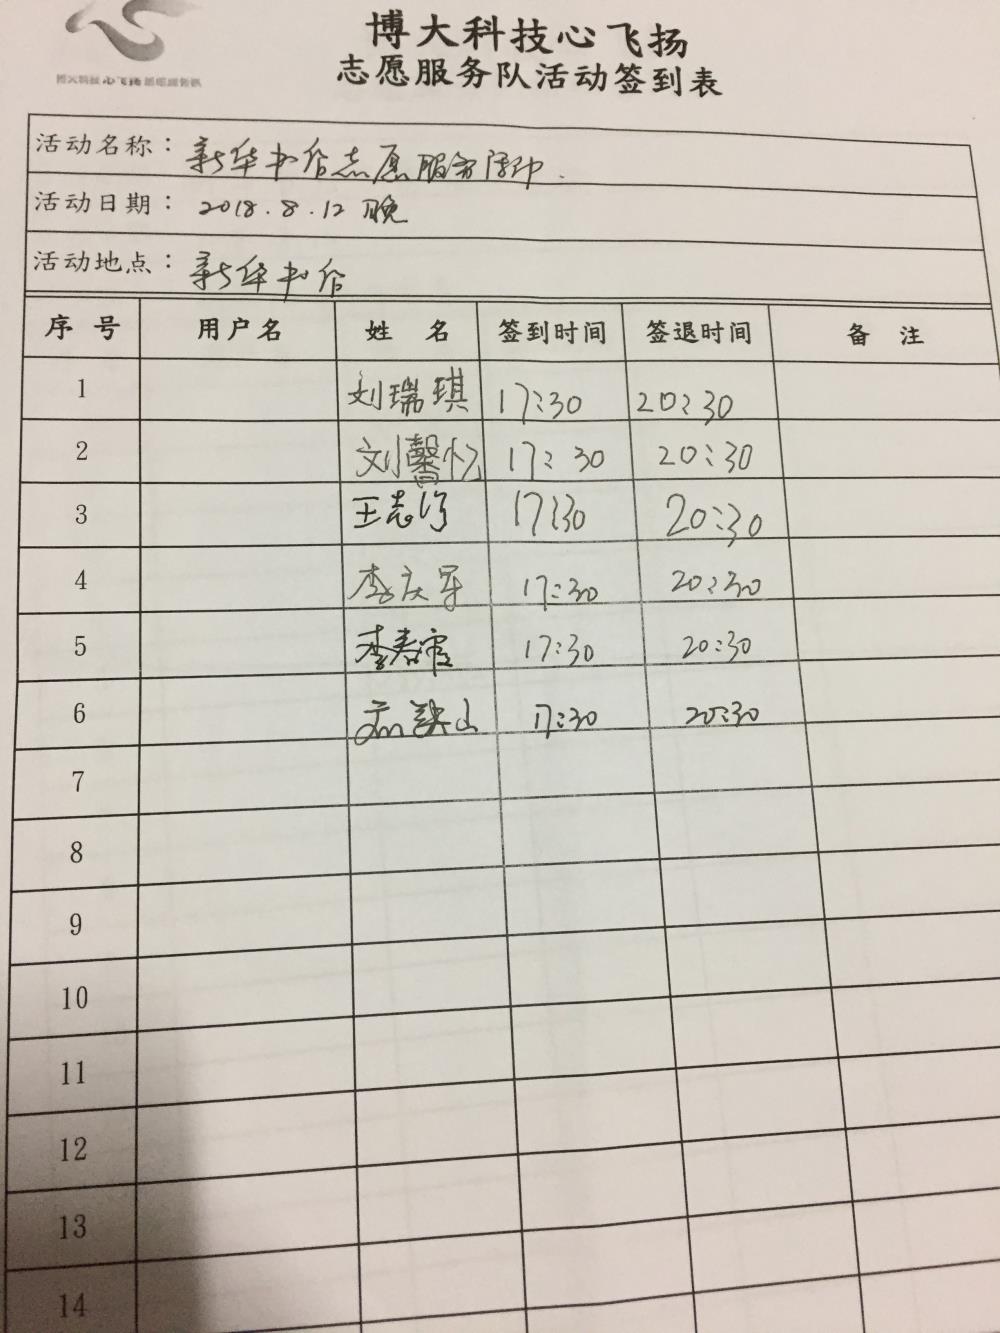 博大科技心飞扬志愿服务队
博大科技心飞扬
志愿服务队活动签到表
活动名称： 新华书店志愿服务活动
活动日期： 2018.8.12 晚
活动地点： 新华书店
序号 用户名 姓名 签到时间 签退时间 备注
1 刘瑞琪 17:30 20:30
2 刘馨忆 17:30 20:30
3 王志 17:30 20:30
4 李庆军 17:30 20:30
5 李春霞 17:30 20:30
6 山 17:30 20:30
7
8
9
10
11
12
13
14